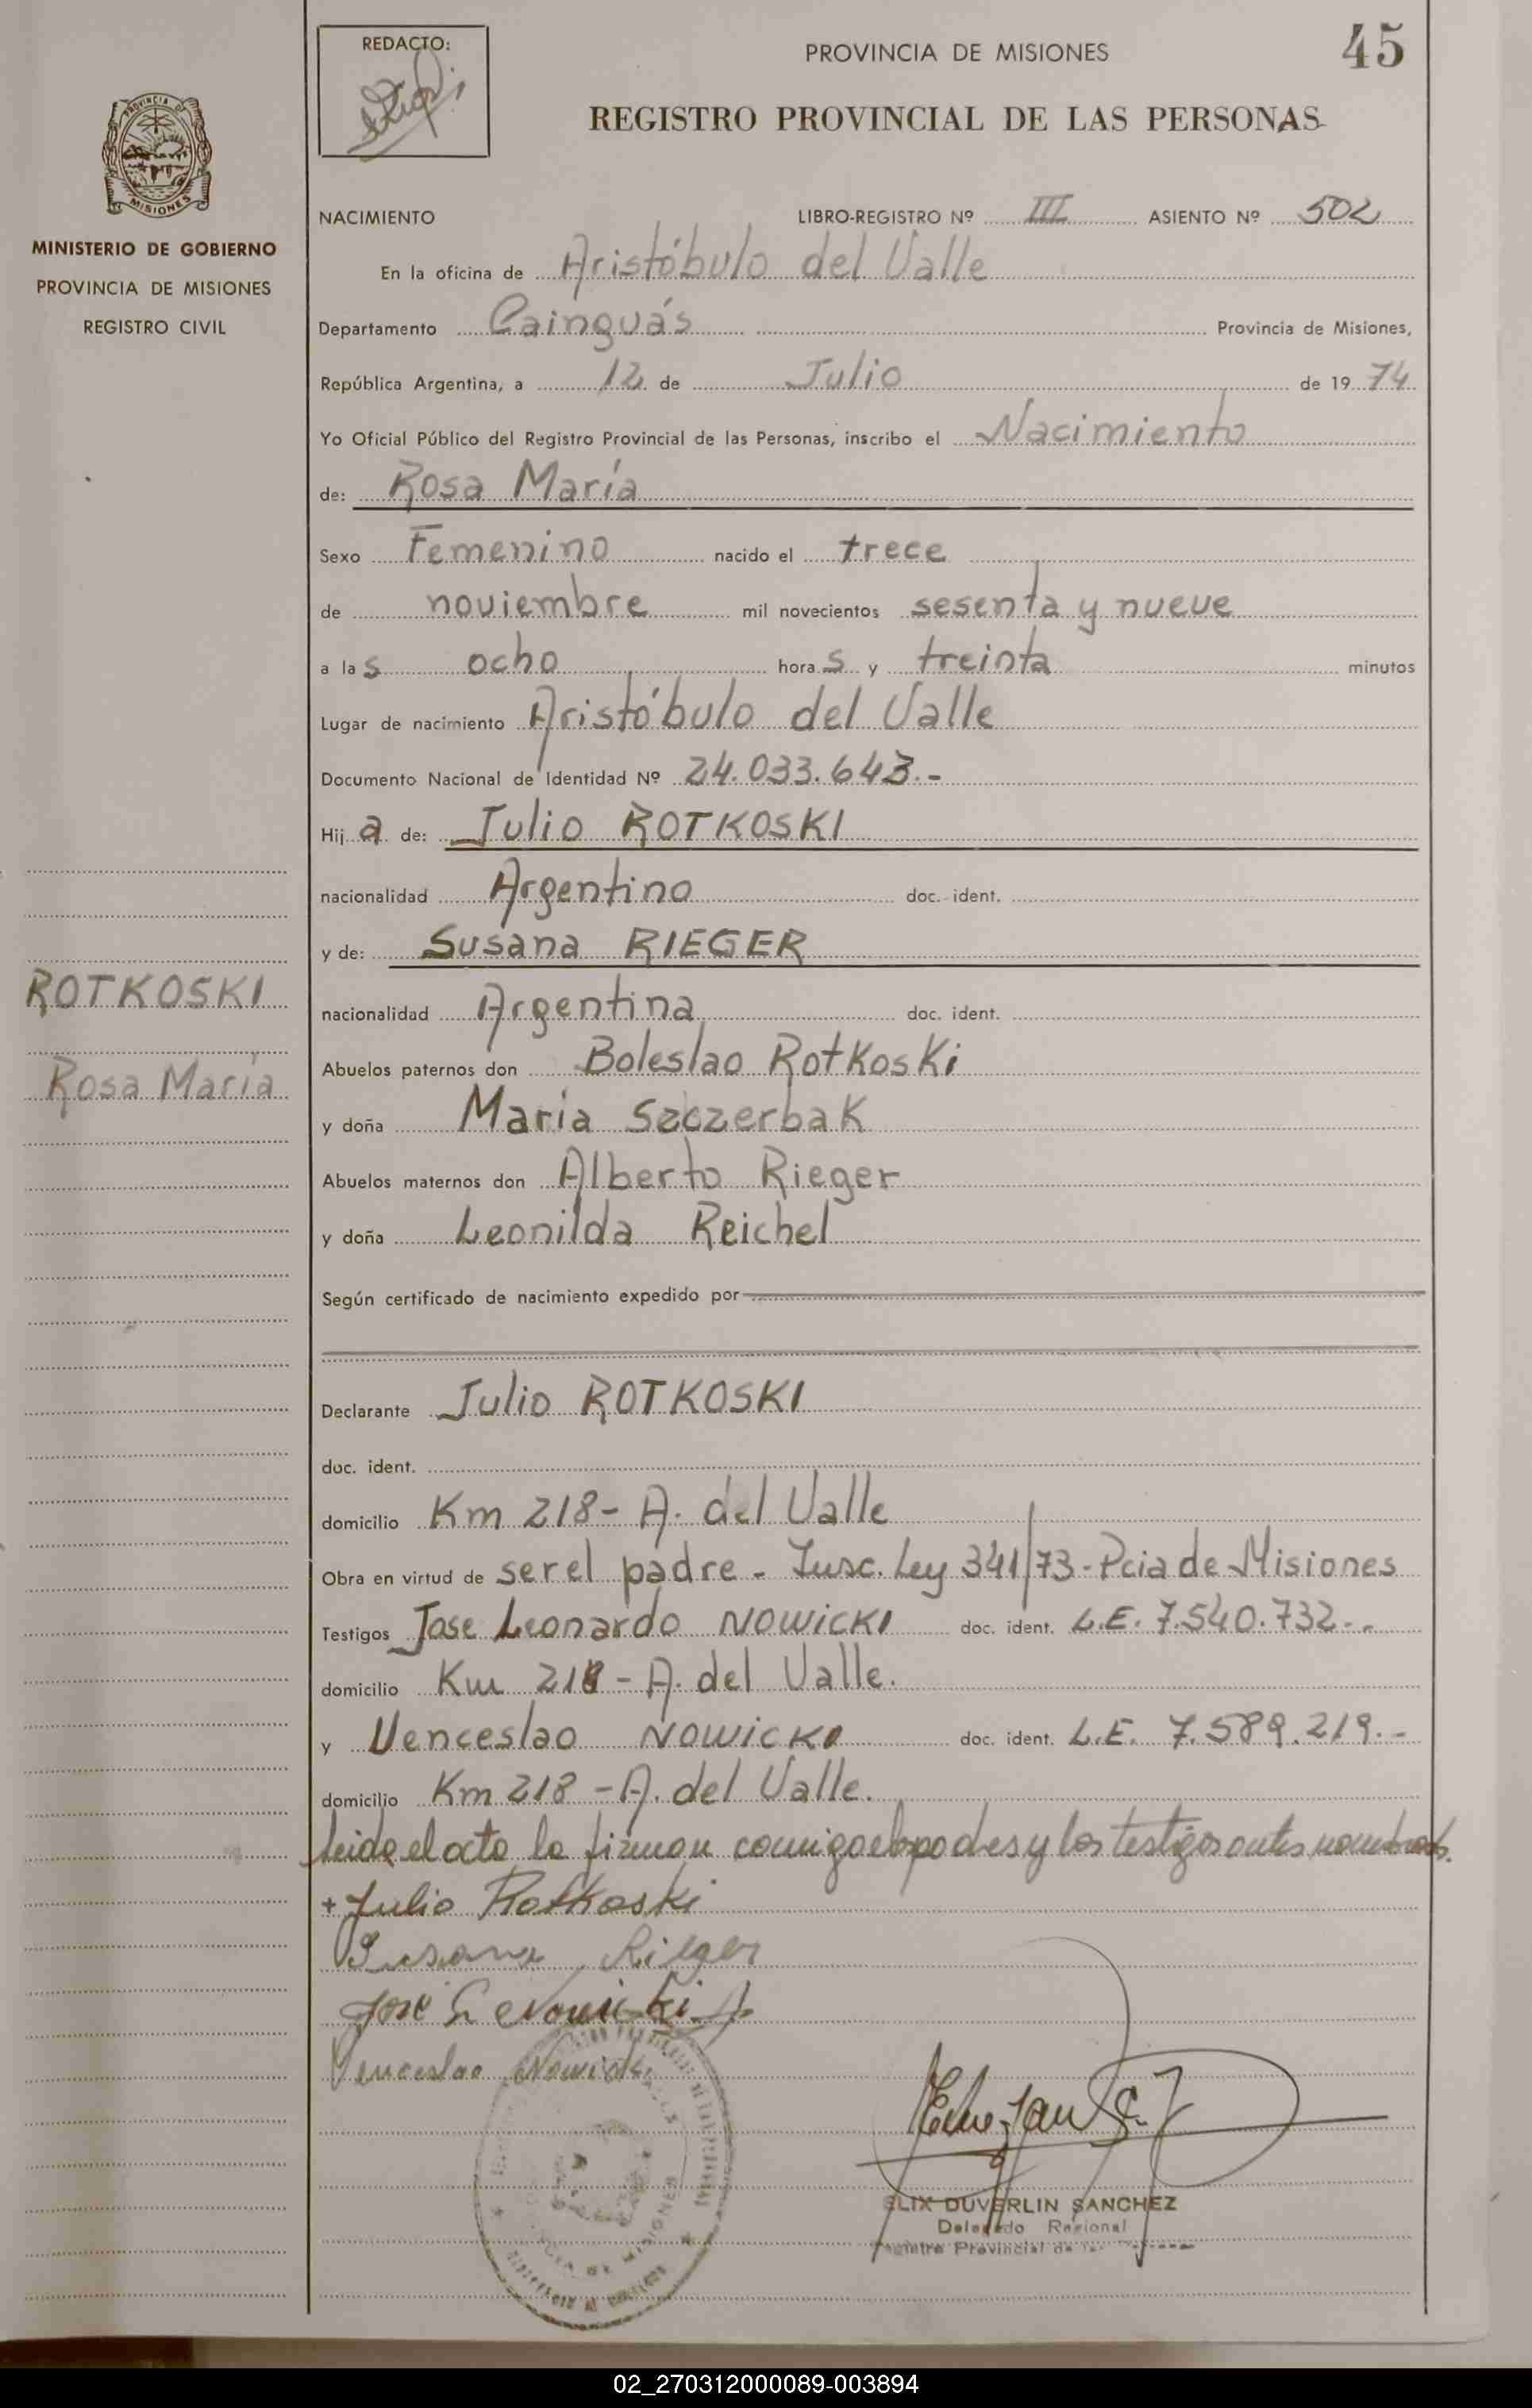 REDACTO:
PROVINCIA DE MISIONES
45
REGISTRO PROVINCIAL DE LAS PERSONAS
PROVINCIA DE
MISIONES
MINISTERIO DE GOBIERNO
PROVINCIA DE MISIONES
REGISTRO CIVIL
NACIMIENTO LIBRO-REGISTRO Nº III ASIENTO Nº 502
En la oficina de Aristóbulo del Valle
Departamento Cainguás Provincia de Misiones,
República Argentina, a 12 de Julio de 19 74
Yo Oficial Público del Registro Provincial de las Personas, inscribo el Nacimiento
de: Rosa María
Sexo Femenino nacido el trece
de noviembre mil novecientos sesenta y nueve
a las ocho horas y treinta minutos
Lugar de nacimiento Aristóbulo del Valle
Documento Nacional de Identidad Nº 24.033.643.-
Hija de: Julio ROTKOSKI
nacionalidad Argentino doc. ident.
y de: Susana RIEGER
nacionalidad Argentina doc. ident.
ROTKOSKI
Rosa María
Abuelos paternos don Boleslao Rotkoski
y doña Maria Szczerbak
Abuelos maternos don Alberto Rieger
y doña Leonilda Reichel
Según certificado de nacimiento expedido por
Declarante Julio ROTKOSKI
doc. ident.
domicilio Km 218- A. del Valle
Obra en virtud de ser el padre - Insc. Ley 341/73 - Pcia de Misiones
Testigos Jose Leonardo NOWICKI doc. ident. L.E. 7.540.732.-
domicilio Km 218 - A. del Valle.
y Venceslao NOWICKI doc. ident. L.E. 7.589.219.-
domicilio Km 218 - A. del Valle.
leido el acto lo firman conmigo los padres y los testigos antes nombrados.
+ Julio Rotkoski
Susana Rieger
José L. Nowicki
Venceslao Nowicki
ELIX DUVERLIN SANCHEZ
Delegado Regional
Registro Provincial de las
02_270312000089-003894